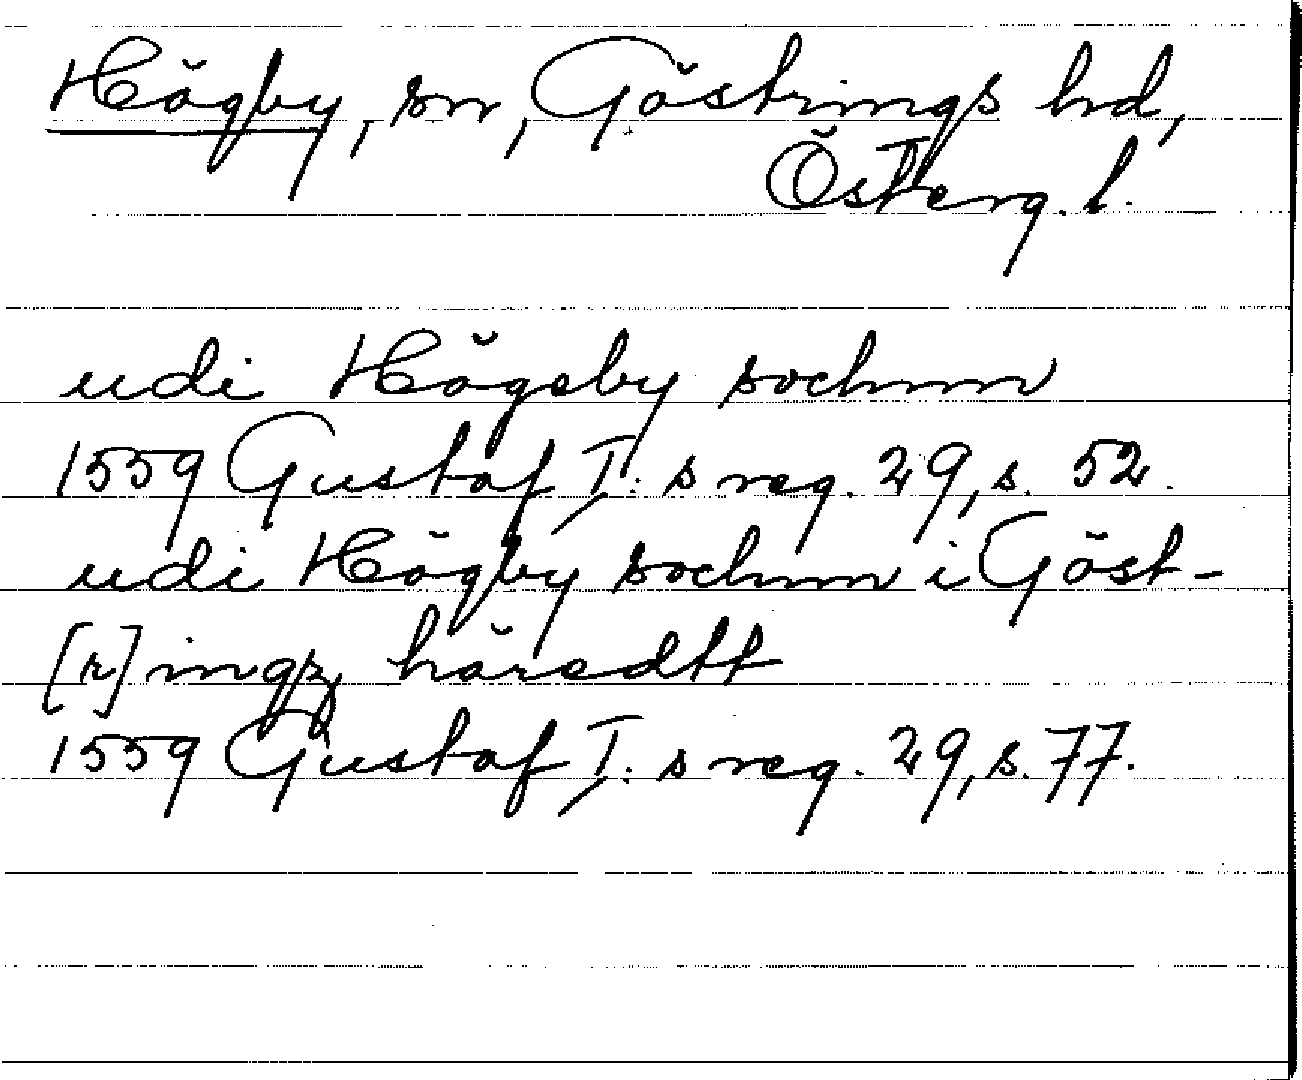 Högby, sn, Göstrings hd,
Österg. l.
udi Högeby sochnn
1559 Gustaf I: s reg. 29, s. 52.
udi Högby sochnn i Göst-
[r]ingz häredtt
1559 Gustaf I: s reg. 29, s. 77.